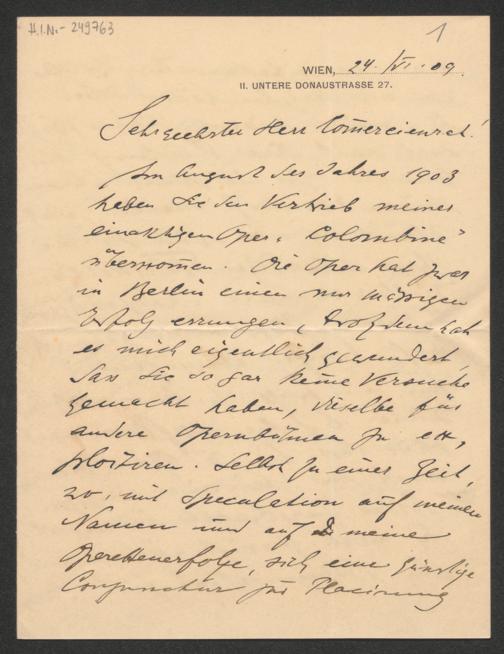 H.I.N.- 249763
1
WIEN, 24./VI. 09.
II. UNTERE DONAUSTRASSE 27.
Sehrgeehrter Herr Com̄ercienrat!
Im August des Jahres 1903
haben Sie den Vertrieb meiner
einaktigen Oper „Colombine"
übernom̄en. Die Oper hat zwar
in Berlin einen nur mässigen
Erfolg errungen, trotzdem hat
es mich eigentlich gewundert,
dass Sie so gar keine Versuche
gemacht haben, dieselbe für
andere Opernbühnen zu ex-
ploitiren. Selbst zu einer Zeit,
wo, mit Speculation auf meinen
Namen und auf meine
Operettenerfolge, sich eine günstige
Conjunctur für Placirung